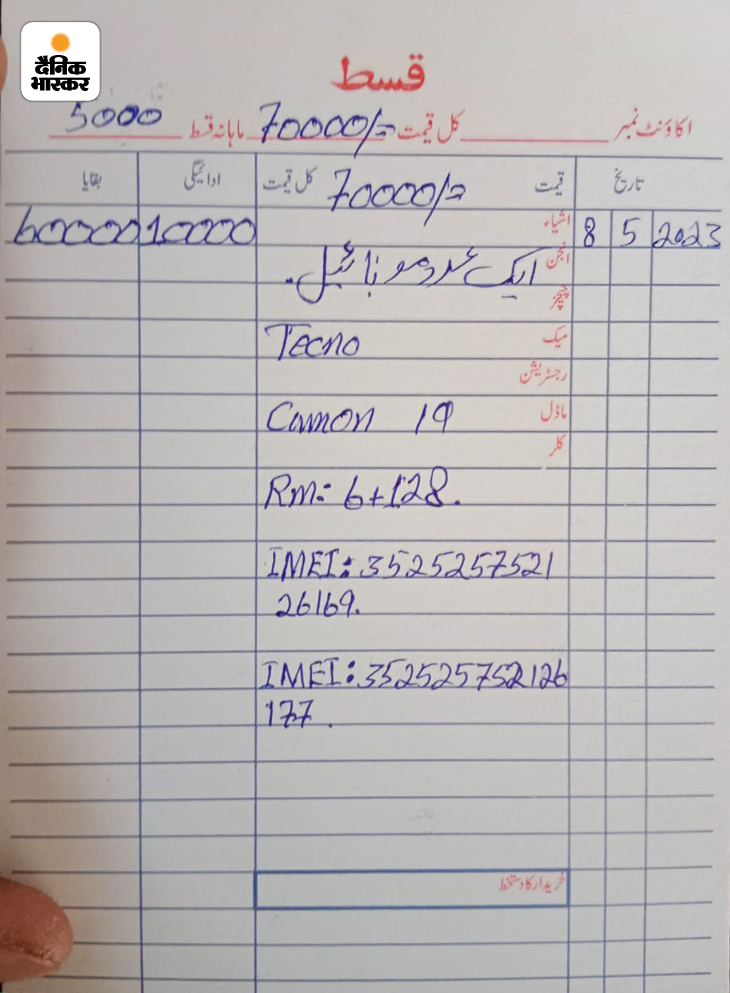 दैनिक
भास्कर
قسط
اکاؤنٹ نمبر کل قیمت 70000/= ماہانہ قسط 5000
تاریخ قیمت 70000/= کل قیمت ادائیگی بقایا
8 5 2023 اشیاء 10000 60000
انجن ایک عدد موبائیل.
چیچز
میک Tecno
رجسٹریشن
ماڈل Camon 19
کلر
Rm:- 6+128.
IMEI: 3525257521
26169.
IMEI: 352525752126
177.
خریدار کا دستخط